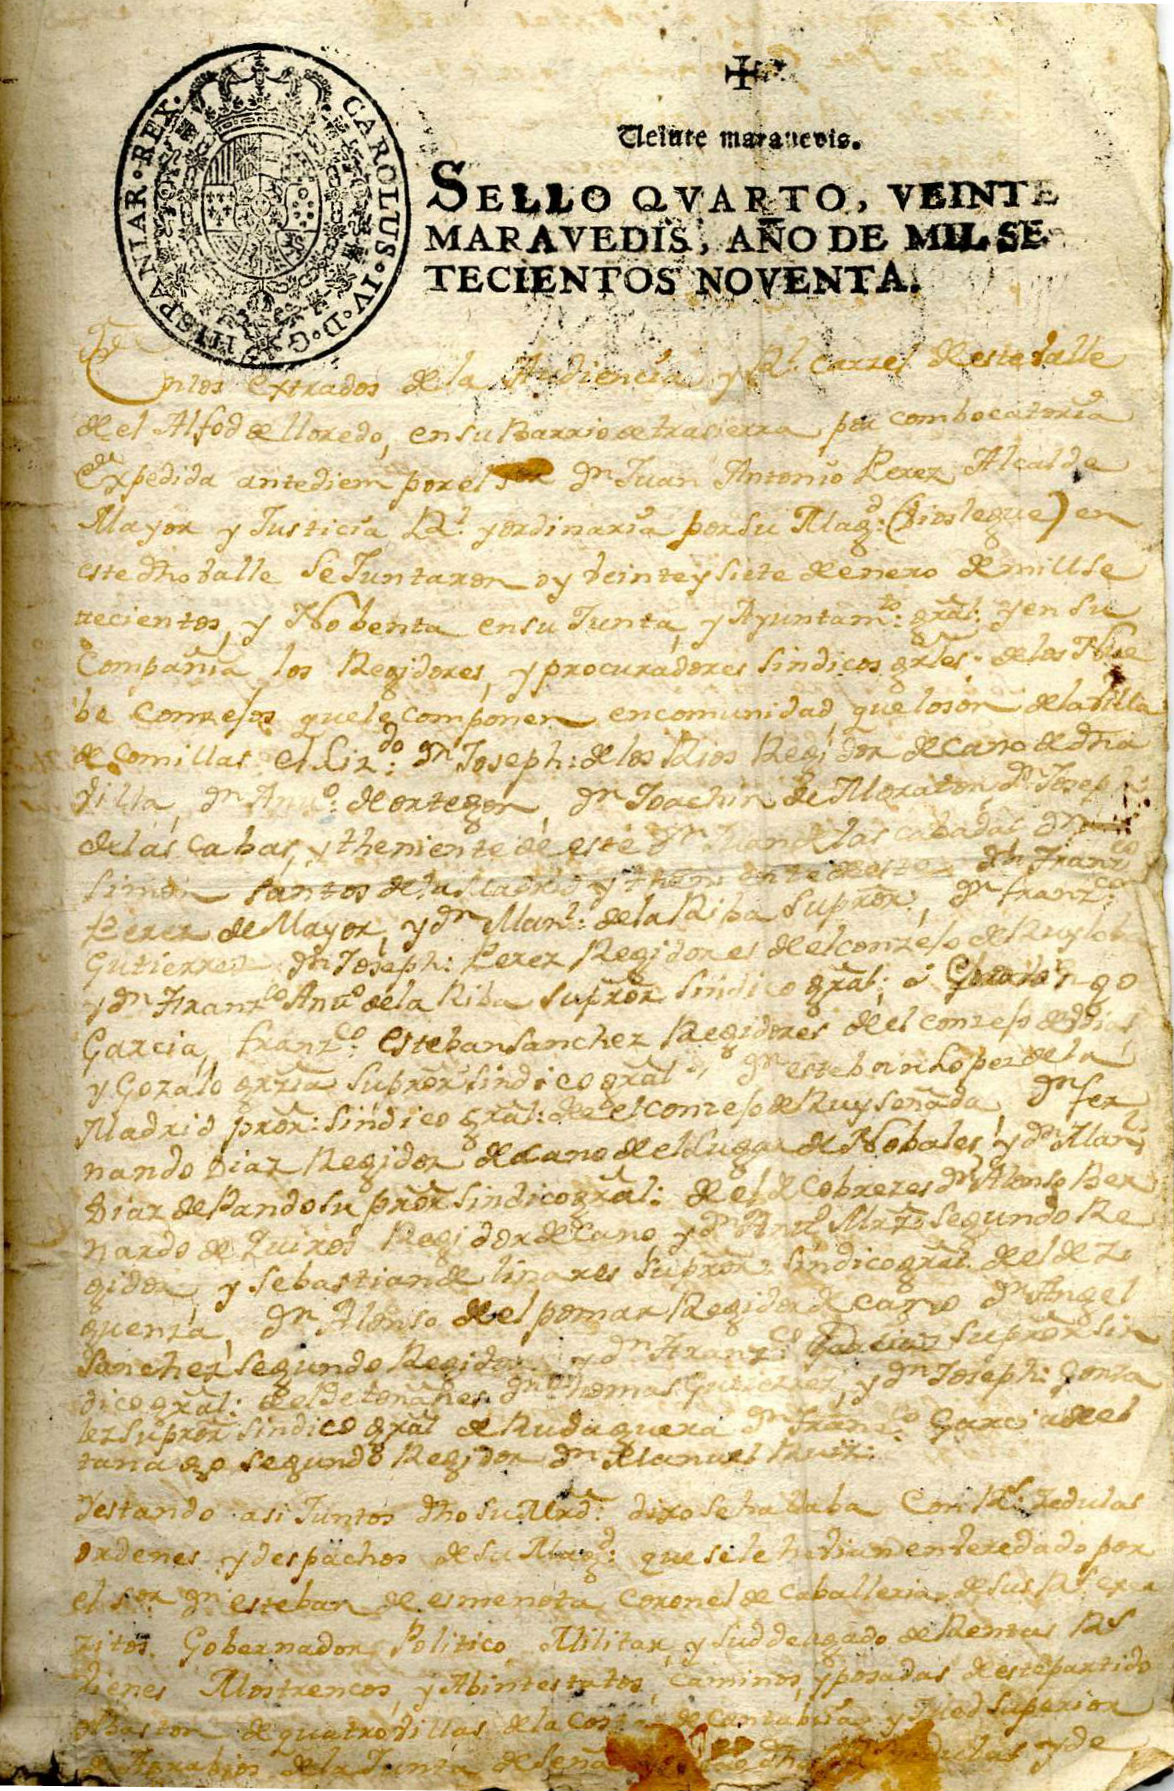 CAROLUS·IV·D·G·HISPANIAR·REX·
Veinte maravedis.
SELLO QVARTO, VEINTE
MARAVEDIS, AÑO DE MIL SE
TECIENTOS NOVENTA.
En los extrados de la Audiencia y Rl. carzel de este valle
de el Alfoz de lloredo, en su Barrio de trasierra por combocatoria
expedida antediem por el Sor dn Juan Antonio Perez Alcalde
Mayor y Justicia Rl. y ordinaria por su Magd: (Dios le gue) en
este dho valle Se Juntaron oy veinte y siete de enero de mill se
tecientos, y Nobenta en su Junta, y Ayuntamto: gral: y en su
Compañia los Regidores, y procuradores sindicos grles: de los Nue
be conzejos que le componen en comunidad, que lo son de la villa
de Comillas el Lizdo: dn Joseph: de los Rios Regidor decano de dha
villa, dn Anto: de ortegon, dn Joachin de Moraton, dn Josep
de las cabas, y theniente de este dn Juan de las cabadas dn
Simon santos de la Madrid y dn Franzco
Perez de Mayor, y dn Manl: de la Riba su pror, dn franzco:
Gutierrez dn Joseph: Perez Regidores de el conzejo de Ruyloba
y dn Franzco Anto de la Riba su pror sindico gral:
Garcia, franzco: esteban Sanchez Regidores de el conzejo de
y Gozalo grzia su pror sindico gral dn esteban Lopez de la
Madrid pror: sindico gral: de el conzejo de Ruyseñada, dn fer
nando Diaz Regidor decano de el lugar de Nobales, y dn Manl
Diaz de Pando su pror sindico gral: de el de Cobrezes dn Alonso Ber
nardo de Quiros Regidor decano y dn segundo Re
gidor, y sebastian de linares su pror: sindico gral. de el de Zi
guenza, dn Alonso de el pomar Regidor decano dn Angel
Sanchez segundo Regidor y dn Franzco Garcia su pror sin
dico gral: de el de toñanes dn thomas Gutierrez, y dn Joseph: gonza
lez su pror sindico gral de Rudaguera dn Franco: Garcia de el
segundo Regidor dn Manuel Ruiz:
Y estando asi Juntos dho su Mrd: dixo se hallaba Con Rs Zedulas
ordenes y despachos de su Magd: que se le havian enderedado por
el sor dn esteban de esmenota, coronel de caballeria de sus Rs exer
zitos Gobernador Politico, Militar, y subdelegado de Rentas Rs
bienes Mostrencos, y Abintestatos, caminos, y posadas de este partido
baston de quatro villas de la costa de cantabria y Juez superior
de Agrabios de la Junta de Zedulas y de